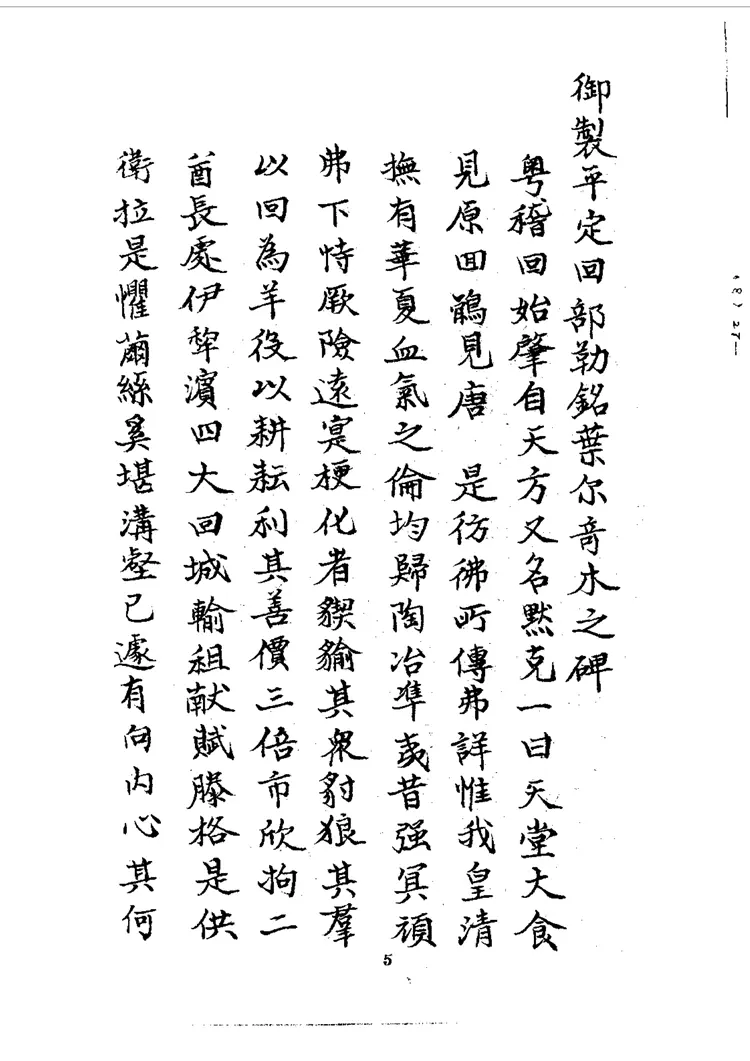 御製平定回部勒銘葉尔竒木之碑
粤稽回始肇自天方又名黙克一曰天堂大食
見原囬鶻見唐 是彷彿所傳弗詳惟我皇清
撫有華夏血氣之倫均歸陶冶凖夷昔强冥頑
弗下恃厥險遠寔梗化者貏貐其衆豺狼其羣
以回為羊役以耕耘利其善價三倍市欣拘二
酋長處伊犂濱四大回城輸租献賦滕格是供
衛拉是懼繭絲奚堪溝壑已遽有向内心其何
5